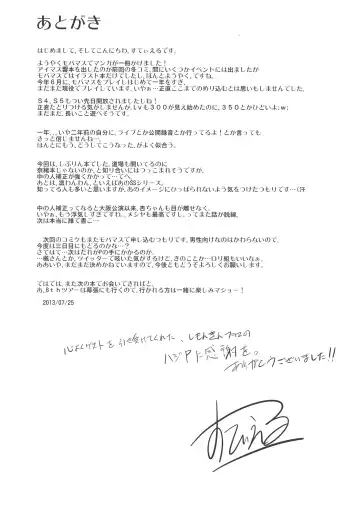 あとがき
はじめまして、そしてこんにちわ、すてぃえるです。
ようやくモバマスでマンガが一冊かけました!
アイマス響本を出したのが前回の冬コミ、間にいくつかイベントには出ましたが
モバマスではイラスト本だけでしたし、ほんとようやく、ですね。
今年6月に、モバマスをプレイしはじめて一年をすぎ、
まだまだ現役でプレイしています、いやぁ…正直ここまでのめり込むとは思いもしませんでした。
S4、S5もつい先日開放されましたしね!
正直たどりつける気がしませんが、Lvも300が見え始めたのに、350とかひといよ:w;
まだまだ、長いこと遊べそうです。
一年…いや二年前の自分に、ライブとか公開録音とか行ってるよ!とか言っても
きっと信じませんね…
ほんとにもう、どうしてこうなった、がよく似合う。
今回は、しぶりん本でした、道場も開いてるのに
奈緒本じゃないのか、と知り合いにはつっこまれそうですが、
中の人補正が強くかかって…でへ。
あとは、温わんわん、といえばあのSSシリーズ。
知ってる人も多いと思いますが、あのイメージにひっぱられないよう気をつけたつもりです…(汗
中の人補正ってなると大阪公演以来、杏ちゃんも目が離せなく、
いやぁ、もう浮気しすぎですね…メシヤも最高ですし、ってまた話が脱線、
次は本当に誰で書こ…
次回のコミケもまたモバマスで申し込むつもりです、男性向けなのはかわらないので、
今度は三日目にもどるのかな…?
さてはて…次はだれがPの手にかかるのか、
…楓さんとか、ツイッターで呟いた気がするけど、きのことか…ロリ組もいいなぁ、
ああいや、まだまだ決めかねていますので、今後ともどうぞよろしくお願いします。
ではでは、また次の本でお会いできればと、
あ、8thツアーは幕張にも行くので、行かれる方は一緒に楽しみマショー!
2013/07/25
心よくゲストを引き受けてくれた、
ハジPに感謝を。
ありがとうございました!!
すてぃえる